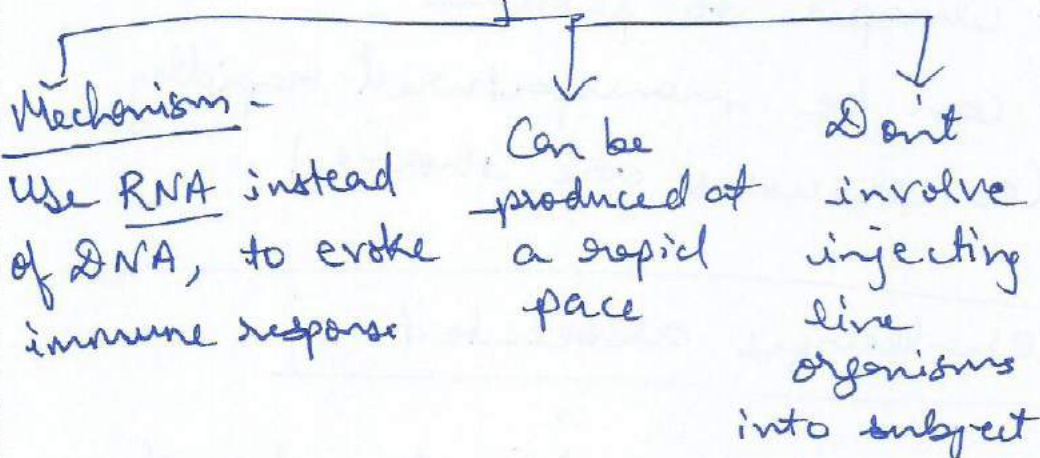 Mechanism -
Use RNA instead
of DNA, to evoke
immune response
Can be
produced at
a rapid
pace
Don't
involve
injecting
live
organisms
into subject